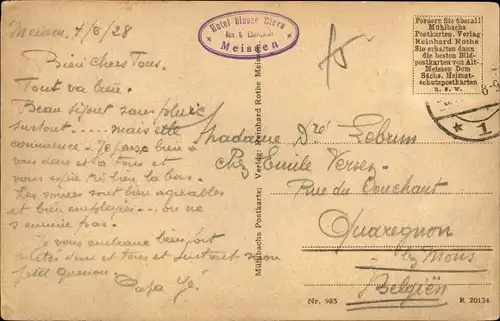 Meissen, 4/6/28
Bien Chers Tous.
Tout va bien.
Beau séjour sans pluie
surtout..... mais elle
commence. - Je pense bien à
vous deux et à tous et
vous espère très bien là bas.
Les soirées sont bien agréables
et bien employées... on ne
s'ennuie pas.
Je vous embrasse bien fort
toutes deux et tous et surtout mon
petit
Papa
Hotel blauer Stern
Meissen
Mühlbachs Postkarte: Verlag: Reinhard Rothe Meissen
Fordern Sie überall
Mühlbachs
Postkarten. Verlag
Reinhard Rothe
Sie erhalten dann
die besten Bild-
postkarten von Alt-
Meissen Dom
Sächs. Heimat-
schutzpostkarten
u. s. w.
* 1
Madame Dré Lebrun
Chez Emile Versey
Rue du Couchant
Quaregnon
lez Mons
Belgien
Nr. 985
R 20134